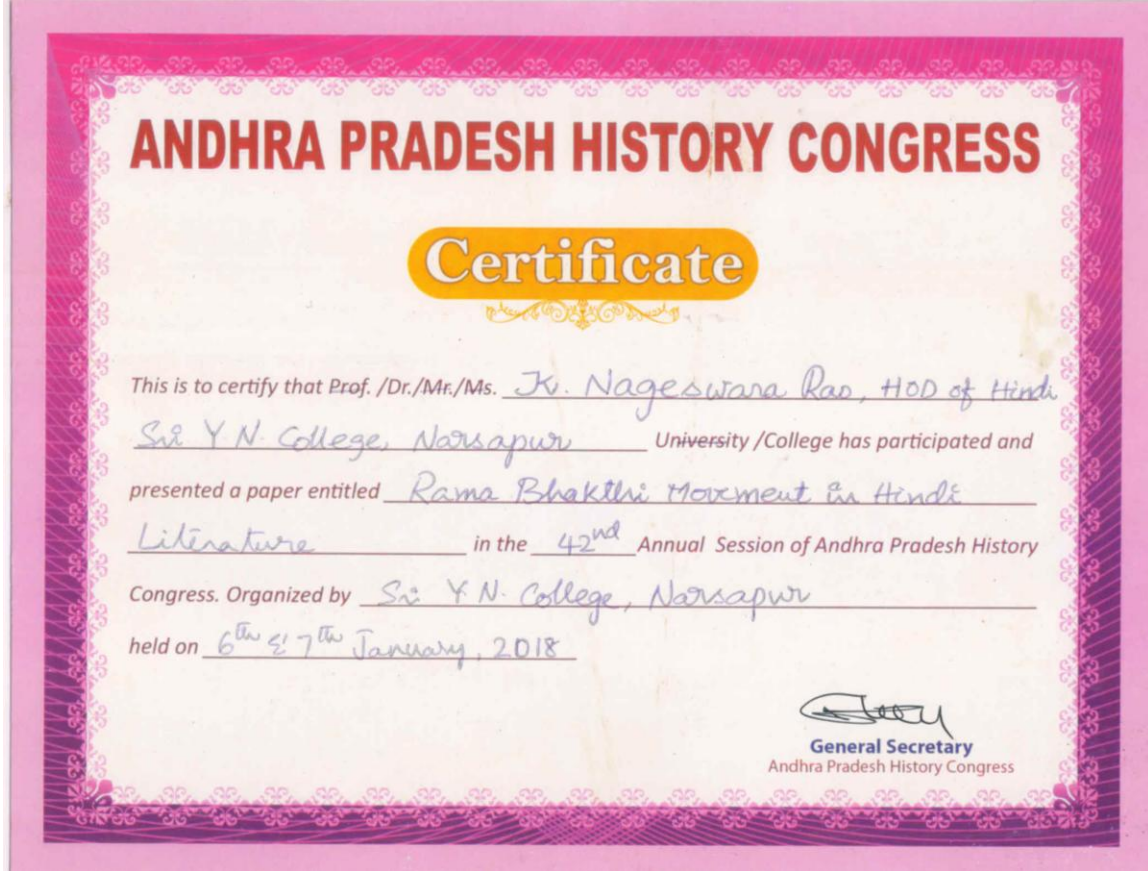 ANDHRA PRADESH HISTORY CONGRESS
Certificate
This is to certify that Prof. /Dr./Mr./Ms. K. Nageswara Rao, HOD of Hindi
Sri Y N College, Narsapur University /College has participated and
presented a paper entitled Rama Bhakthi Movement in Hindi
Literature in the 42nd Annual Session of Andhra Pradesh History
Congress. Organized by Sri Y.N. College, Narsapur
held on 6th & 7th January, 2018
General Secretary
Andhra Pradesh History Congress